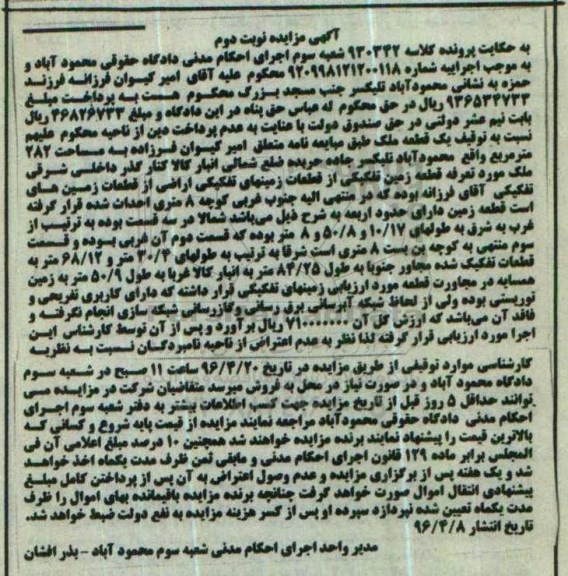 آگهی مزایده نوبت دوم
به حکایت پرونده کلاسه ۹۳۰۳۴۲ شعبه سوم اجرای احکام مدنی دادگاه حقوقی محمود آباد و
به موجب اجراییه شماره ۹۲۰۹۹۸۱۲۱۲۰۰۱۱۸ محکوم علیه آقای امیر کیوان فرزانه فرزند
حمزه به نشانی محمودآباد تلیکسر جنب مسجد بزرگ محکوم هست به پرداخت مبلغ
۹۳۶۵۳۴۷۳۳ ریال در حق محکوم له عباس حق پناه در این دادگاه و مبلغ ۴۶۸۲۶۷۳۳ ریال
بابت نیم عشر دولتی در حق صندوق دولت با عنایت به عدم پرداخت دین از ناحیه محکوم علیهم
نسبت به توقیف یک قطعه ملک طبق مبایعه نامه متعلق امیر کیوان فرزاده به مساحت ۲۸۲
مترمربع واقع محمودآباد تلیکسر جاده حریده ضلع شمالی انبار کالا کنار گذر داخلی شرقی
ملک مورد تعرفه قطعه زمین تفکیکی از قطعات زمینهای تفکیکی اراضی از قطعات زمین های
تفکیکی آقای فرزانه بوده که در منتهی الیه جنوب غربی کوچه ۸ متری احداث شده قرار گرفته
است قطعه زمین دارای حدود اربعه به شرح ذیل می‌باشد شمالا در سه قسمت بوده به ترتیب از
غرب به شرق به طولهای ۱۰/۱۷ و ۵۰/۸ و ۸ متر بوده که قسمت دوم آن غربی بوده و قسمت
سوم منتهی به کوچه بن بست ۸ متری است شرقا به ترتیب به طولهای ۳۰/۴ متر و ۶۸/۱۲ متر به
قطعات تفکیک شده مجاور جنوبا به طول ۸۴/۲۵ متر به انبار کالا غربا به طول ۵۰/۹ متر به زمین
همسایه در مجاورت قطعه مورد ارزیابی زمینهای تفکیکی قرار داشته که دارای کاربری تفریحی و
توریستی بوده ولی از لحاظ شبکه آبرسانی برق رسانی وگازرسانی شبکه سازی انجام نگرفته و
فاقد آن می‌باشد که ارزش کل آن ۷۱۰۰۰۰۰۰۰ ریال برآورد و پس از آن توسط کارشناس این
اجرا مورد ارزیابی قرار گرفته لذا نظر به عدم اعتراض از ناحیه نامبردگان نسبت به نظریه
کارشناسی موارد توقیفی از طریق مزایده در تاریخ ۹۶/۴/۲۰ ساعت ۱۱ صبح در شعبه سوم
دادگاه محمود آباد و در صورت نیاز در محل به فروش میرسد متقاضیان شرکت در مزایده می
توانند حداقل ۵ روز قبل از تاریخ مزایده جهت کسب اطلاعات بیشتر به دفتر شعبه سوم اجرای
احکام مدنی دادگاه حقوقی محمودآباد مراجعه نمایند مزایده از قیمت پایه شروع و کسانی که
بالاترین قیمت را پیشنهاد نمایند برنده مزایده خواهند شد همچنین ۱۰ درصد مبلغ اعلامی آن فی
المجلس برابر ماده ۱۲۹ قانون اجرای احکام مدنی و مابقی ثمن ظرف مدت یکماه اخذ خواهد
شد و یک هفته پس از برگزاری مزایده و عدم وصول اعتراض به آن پس از پرداختن کامل مبلغ
پیشنهادی انتقال اموال صورت خواهد گرفت چنانچه برنده مزایده باقیمانده بهای اموال را ظرف
مدت یکماه تعیین شده نپردازد سپرده او پس از کسر هزینه مزایده به نفع دولت ضبط خواهد شد.
تاریخ انتشار ۹۶/۴/۸
مدیر واحد اجرای احکام مدنی شعبه سوم محمود آباد - بذر افشان